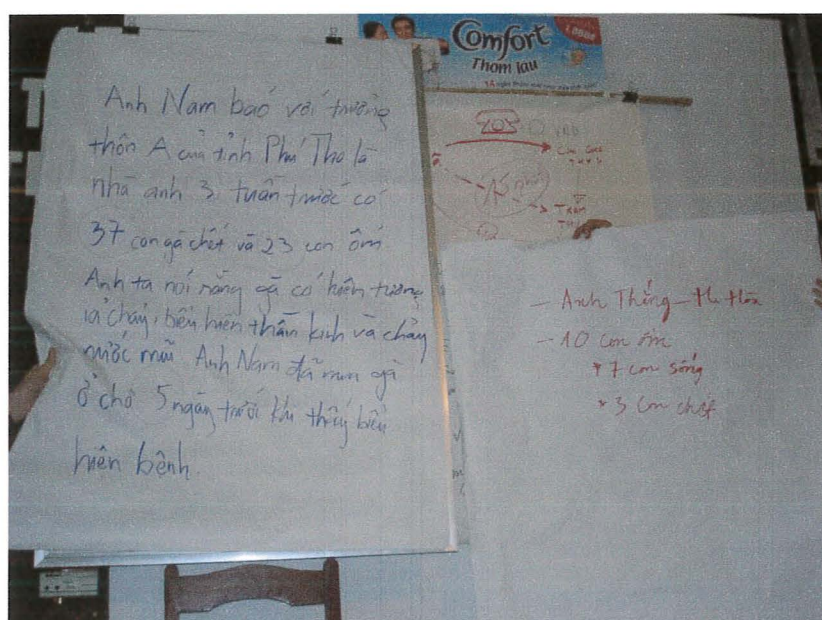 Anh Nam báo với trưởng
thôn A của tỉnh Phú Thọ là
nhà anh 3 tuần trước có
37 con gà chết và 23 con ốm
Anh ta nói rằng gà có hiện tượng
ỉa chảy, biểu hiện thần kinh và chảy
nước mũi Anh Nam đã mua gà
ở chợ 5 ngày trước khi thấy biểu
hiện bệnh.
Comfort
Thơm lâu
205
15 phút
TRẠM
- Anh Thắng -
- 10 con ốm
* 7 con sống
* 3 con chết